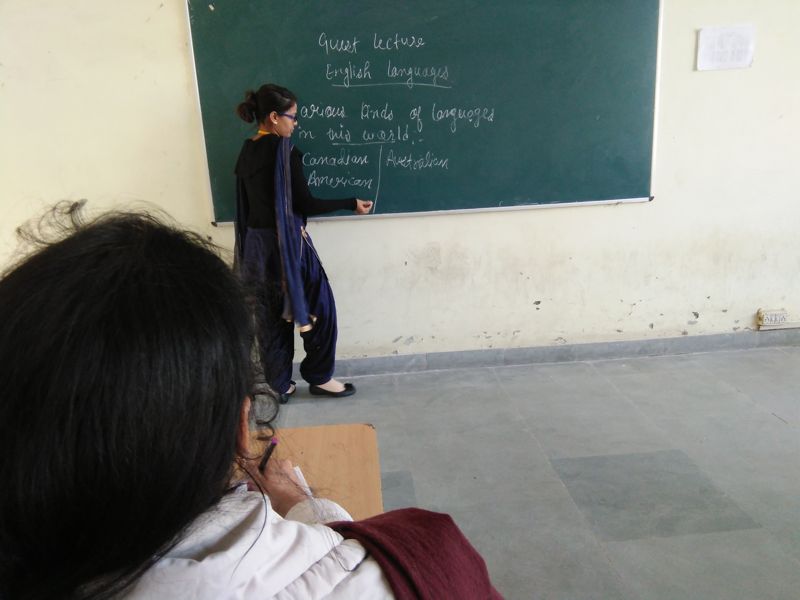 Guest lecture
English languages
arious kinds of languages
in this world:-
Canadian | Australian
American